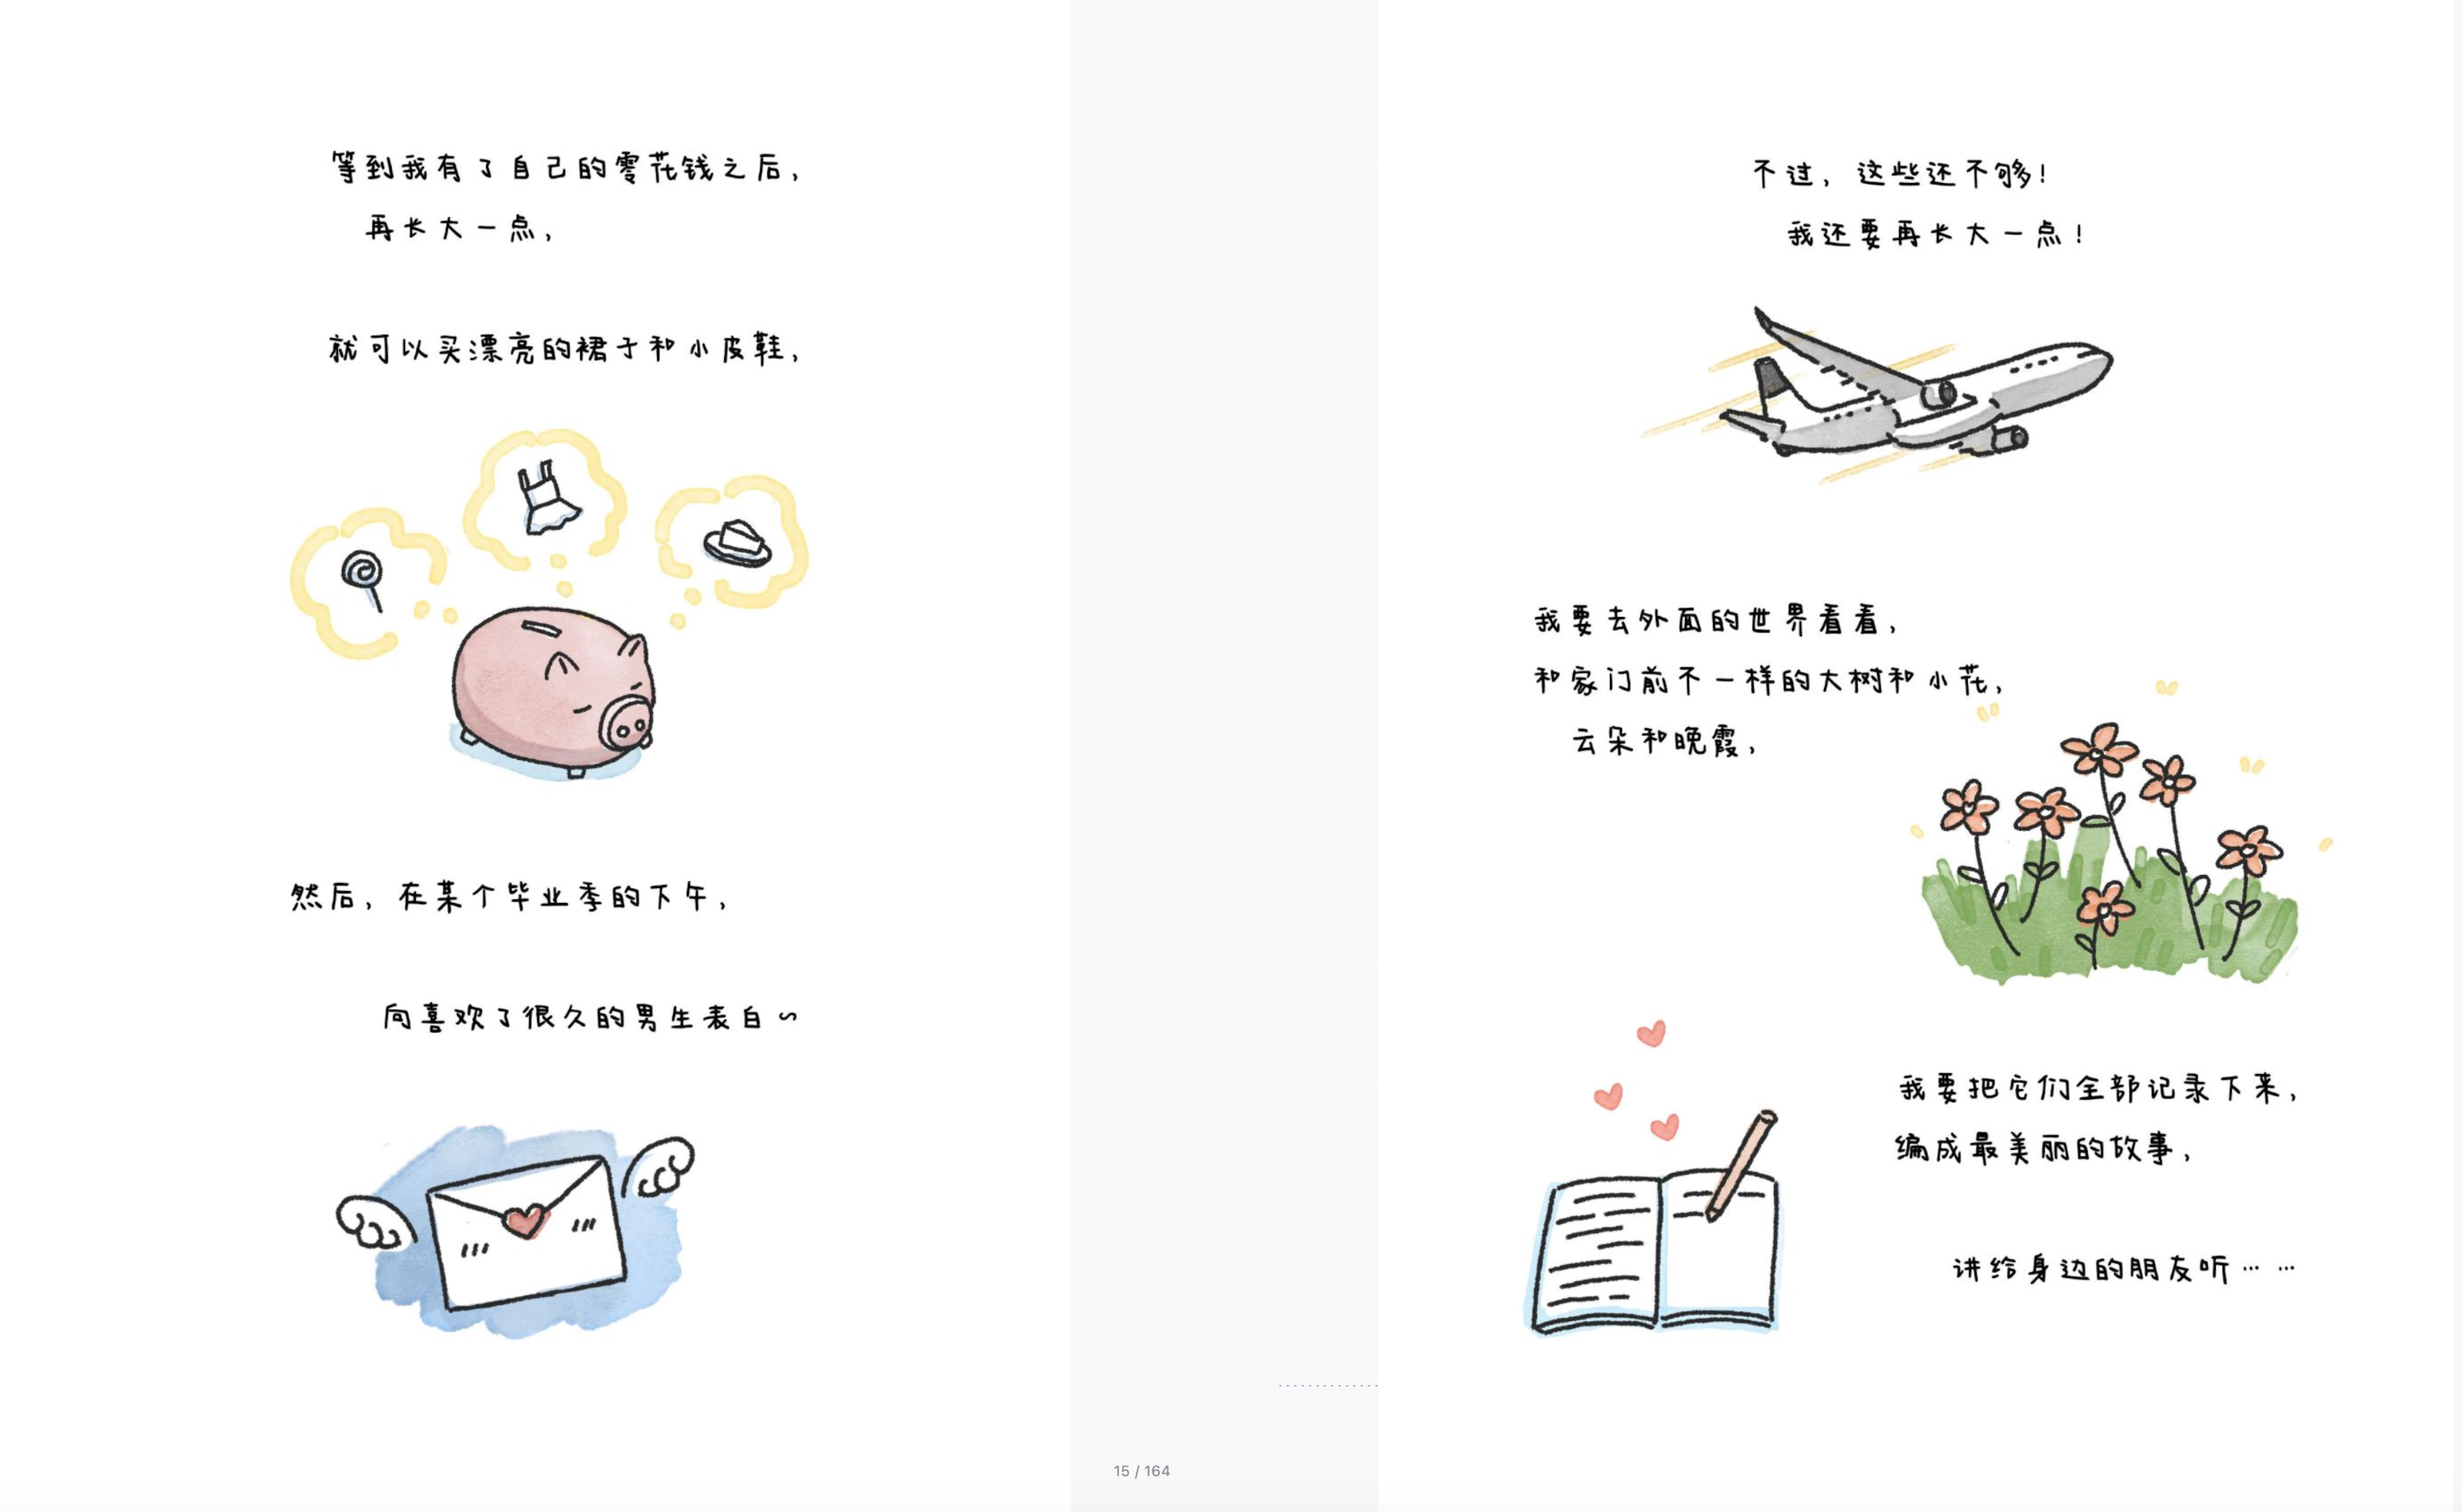 等到我有了自己的零花钱之后,
再长大一点,
就可以买漂亮的裙子和小皮鞋,
然后,在某个毕业季的下午,
向喜欢了很久的男生表白~
不过,这些还不够!
我还要再长大一点!
我要去外面的世界看看,
和家门前不一样的大树和小花,
云朵和晚霞,
我要把它们全部记录下来,
编成最美丽的故事,
讲给身边的朋友听……
15 / 164